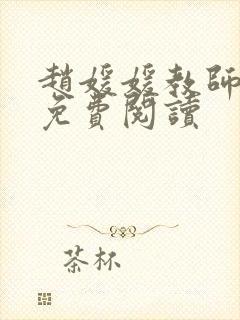 趙媛媛教師
免費閱讀
茶杯